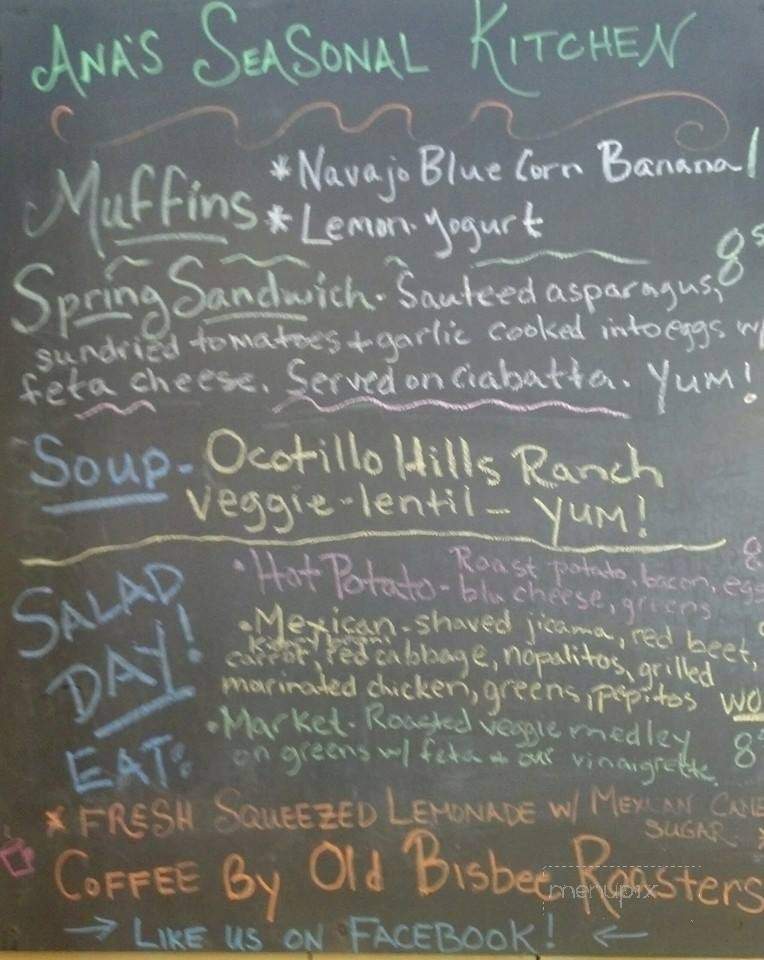 ANA'S SEASONAL KITCHEN
Muffins *Navajo Blue Corn Banana
*Lemon-Yogurt
Spring Sandwich- Sauteed asparagus,
sundried tomatoes + garlic cooked into eggs w/
feta cheese. Served on Ciabatta. Yum!
Soup- Ocotillo Hills Ranch
veggie-lentil- YUM!
SALAD
DAY!
EAT:
•Hot Potato- Roast potato, bacon, egg
blu cheese, greens
•Mexican-shaved jicama, red beet,
carrot, red cabbage, nopalitos, grilled
marinated chicken, greens, pepitos
•Market- Roasted veggie medley
on greens w/ feta + our vinaigrette
* FRESH SQUEEZED LEMONADE W/ MEXICAN CANE
SUGAR
COFFEE By Old Bisbee Roasters
→ LIKE US ON FACEBOOK! ←
menupix